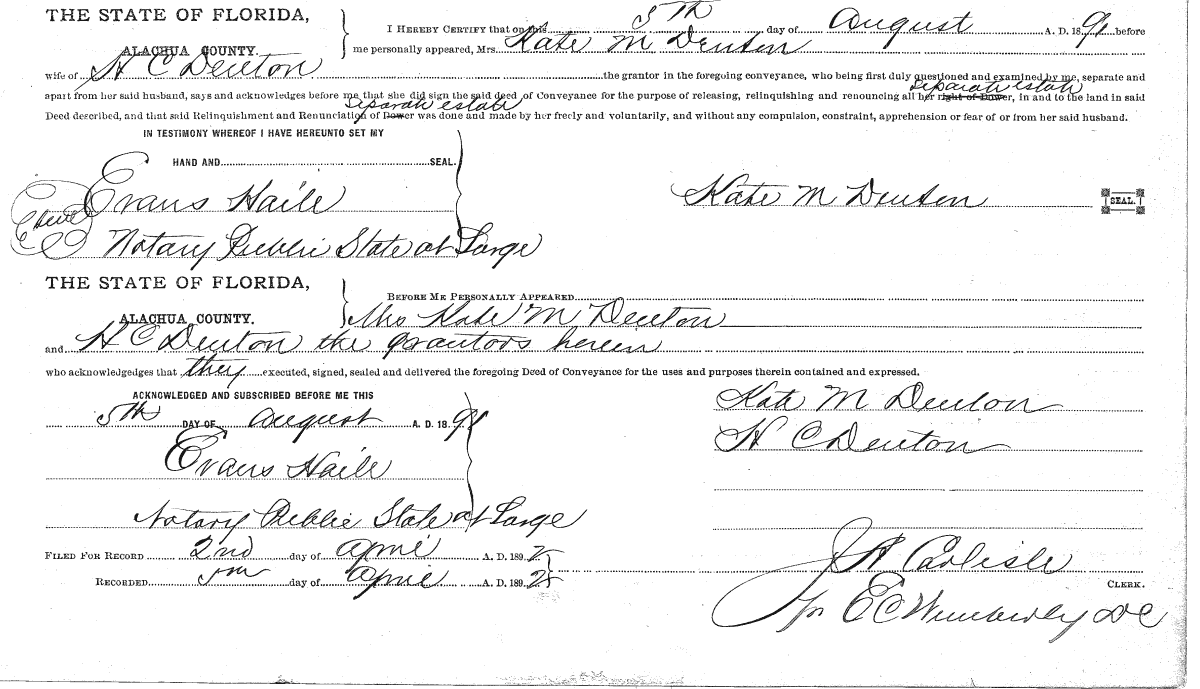 THE STATE OF FLORIDA,
ALACHUA COUNTY.
I HEREBY CERTIFY that on this 5th day of August A. D. 1891 before
me personally appeared, Mrs. Kate M Denton
wife of H C Denton the grantor in the foregoing conveyance, who being first duly questioned and examined by me, separate and
separate estate
apart from her said husband, says and acknowledges before me that she did sign the said deed of Conveyance for the purpose of releasing, relinquishing and renouncing all her right of Dower, in and to the land in said
separate estate
Deed described, and that said Relinquishment and Renunciation of Dower was done and made by her freely and voluntarily, and without any compulsion, constraint, apprehension or fear of or from her said husband.
IN TESTIMONY WHEREOF I HAVE HEREUNTO SET MY
HAND AND SEAL.
Evans Haile
Kate M Denton SEAL.
Notary Public State at Large
THE STATE OF FLORIDA,
ALACHUA COUNTY.
BEFORE ME PERSONALLY APPEARED
Mrs Kate M Denton
and H C Denton the grantors herein
who acknowledges that they executed, signed, sealed and delivered the foregoing Deed of Conveyance for the uses and purposes therein contained and expressed.
ACKNOWLEDGED AND SUBSCRIBED BEFORE ME THIS
5th DAY OF August A. D. 1891
Kate M Denton
H C Denton
Evans Haile
Notary Public State at Large
FILED FOR RECORD 2nd day of April A. D. 189
J A Carlisle
RECORDED day of April A. D. 189
CLERK.
pr E C Wimberly D C